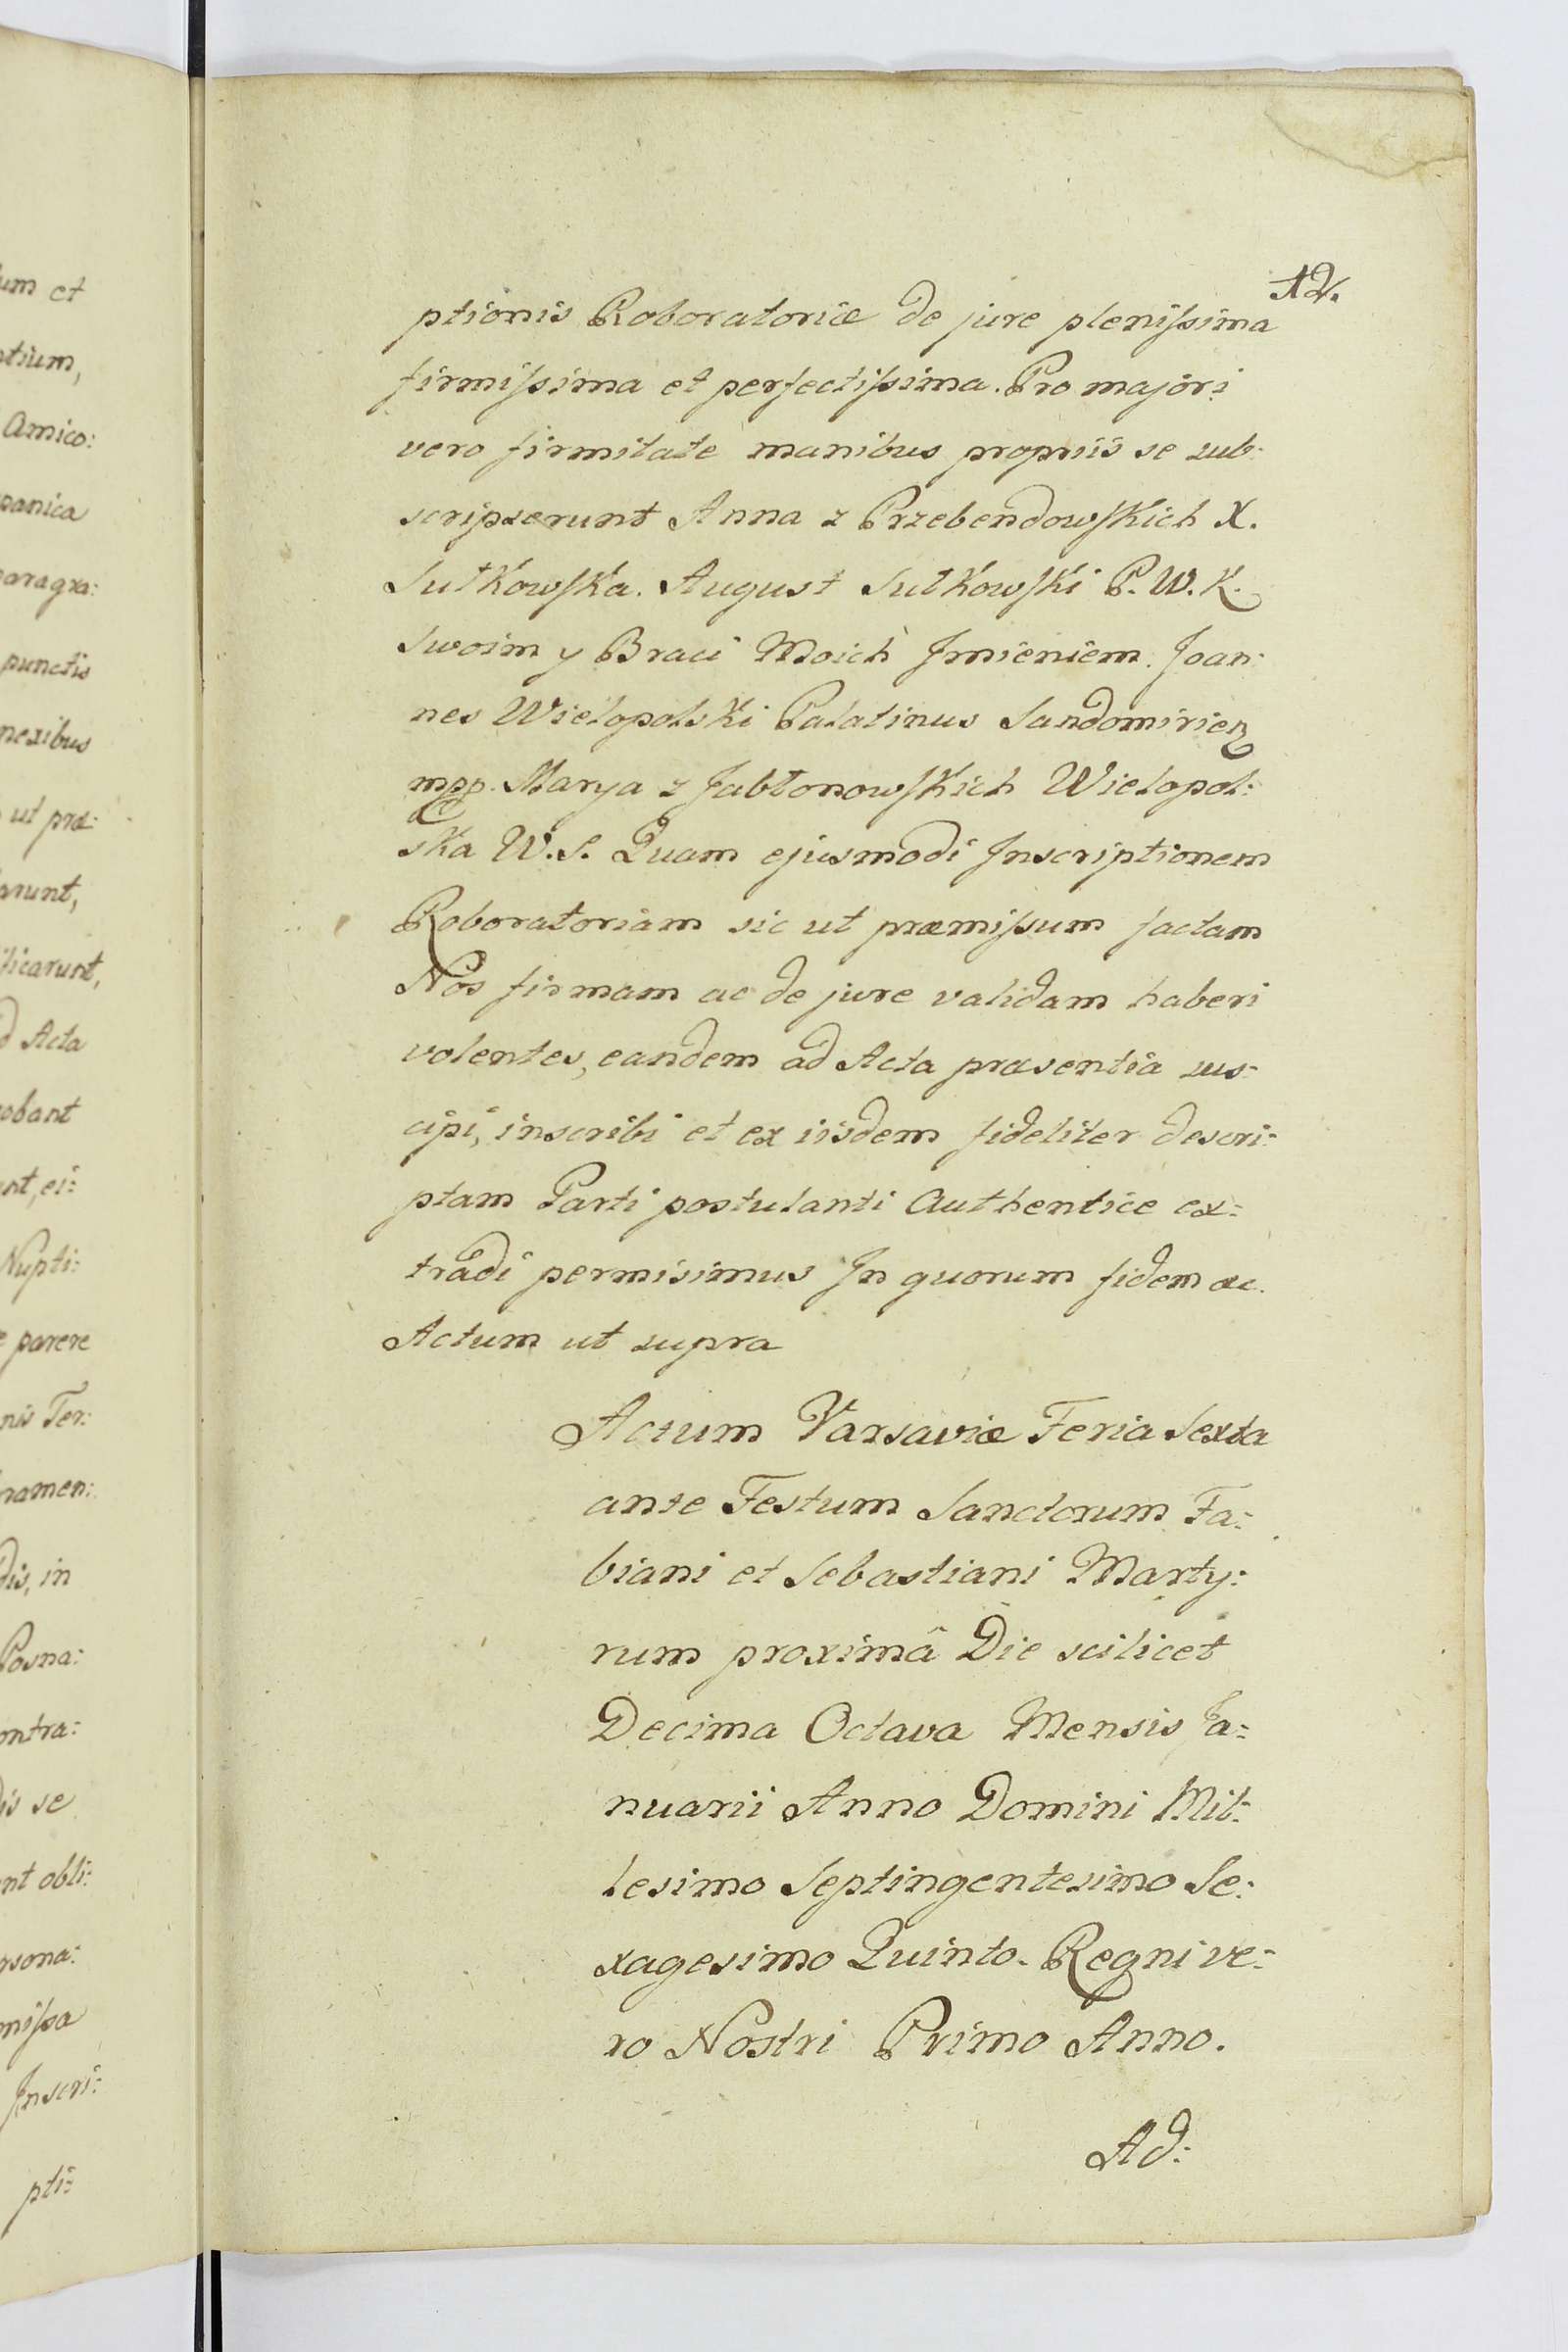 um et
ntium,
Amico:
panica
paragra:
punctis
nexibus
ut præ:
arunt,
ficarunt,
d Acta
robant
unt, ei:
Nupti:
e parere
nis Ter:
bramen:
dis, in
Posna:
ontra:
is se
nt obli:
rsona:
missa
Inscri:
pti:
12.
ptionis Roboratoriæ de jure plenissima
firmissima et perfectissima. Pro majori
vero firmitate manibus propriis se sub:
scripserunt Anna z Przebendowskich X.
Sułkowska. August Sułkowski P. W. K.
Swoim y Braci Moich Jmieniem. Joan:
nes Wielopolski Palatinus Sandomirien
mpp. Marya z Jabłonowskich Wielopol:
ska W. S. Quam ejusmodi Jnscriptionem
Roboratoriam sic ut præmissum factam
Nos firmam ac de jure validam haberi
volentes, eandem ad Acta præsentia sus:
cipi, inscribi et ex iisdem fideliter descri:
ptam Parti postulanti Authentice ex:
tradi permisimus Jn quorum fidem &c.
Actum ut supra
Actum Varsaviæ Feria Sexta
ante Festum Sanctorum Fa:
biani et Sebastiani Marty:
rum proximâ Die scilicet
Decima Octava Mensis Ja:
nuarii Anno Domini Mil:
lesimo Septingentesimo Se:
xagesimo Quinto. Regni ve:
ro Nostri Primo Anno.
Ad: